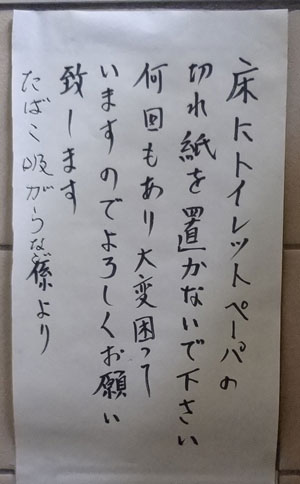 床にトイレットペーパの
切れ紙を置かないで下さい
何回もあり大変困って
いますのでよろしくお願い
致します
たばこ吸がうな より